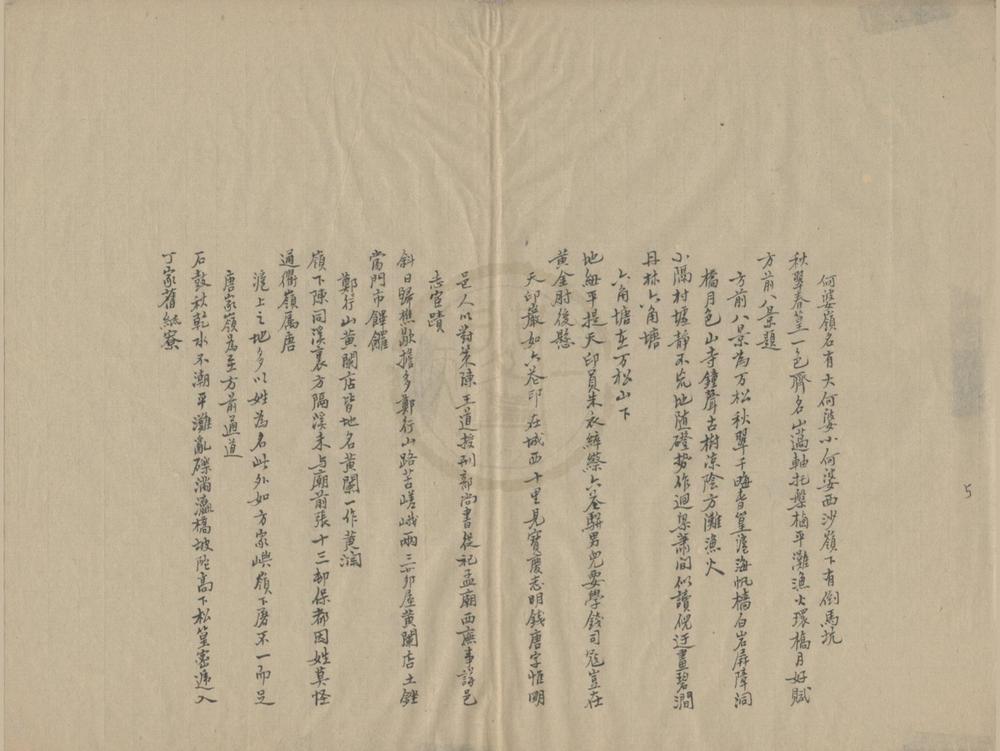 何婆嶺名有大何婆小何婆西沙嶺下有倒馬坑
秋翠春篁一色齊名山薖軸託槃栖平灘漁火環橋月好賦
方前八景題
方前八景為万松秋翠千畮春篁滄海帆檣白岩屏障洞
橋月色山寺鐘聲古樹凉陰方灘漁火
小隔村墟静不荒地随磴勢作迴梁蕭閒似讀倪迂畫碧澗
丹林六角塘
六角塘在万松山下
地紐平提天印員朱衣緈蔡六巻駢男兒要學錢司寇豈在
黄金肘後懸
天印巖如六巻印在城西十里見寳慶志明錢唐字惟明
邑人以對策陳王道授刑部尚書從祀孟廟西廡事詳邑
志宦蹟
斜日歸樵歇擔多鄭行山路苦嵯峨兩三茆屋黄闌店土銼
當門市饆饠
鄭行山黄闌店皆地名黄闌一作黄瀾
嶺下陳同溪裏方隔溪朱与廟前張十三都保都因姓莫怪
通衢嶺属唐
滄上之地多以姓為名此外如方家嶼嶺下屠不一而足
唐家嶺為至方前通道
石鼓社乾水不潮平灘亂礫滿瀛橋坡陀高下松篁密遮入
丁家舊紙寮
5